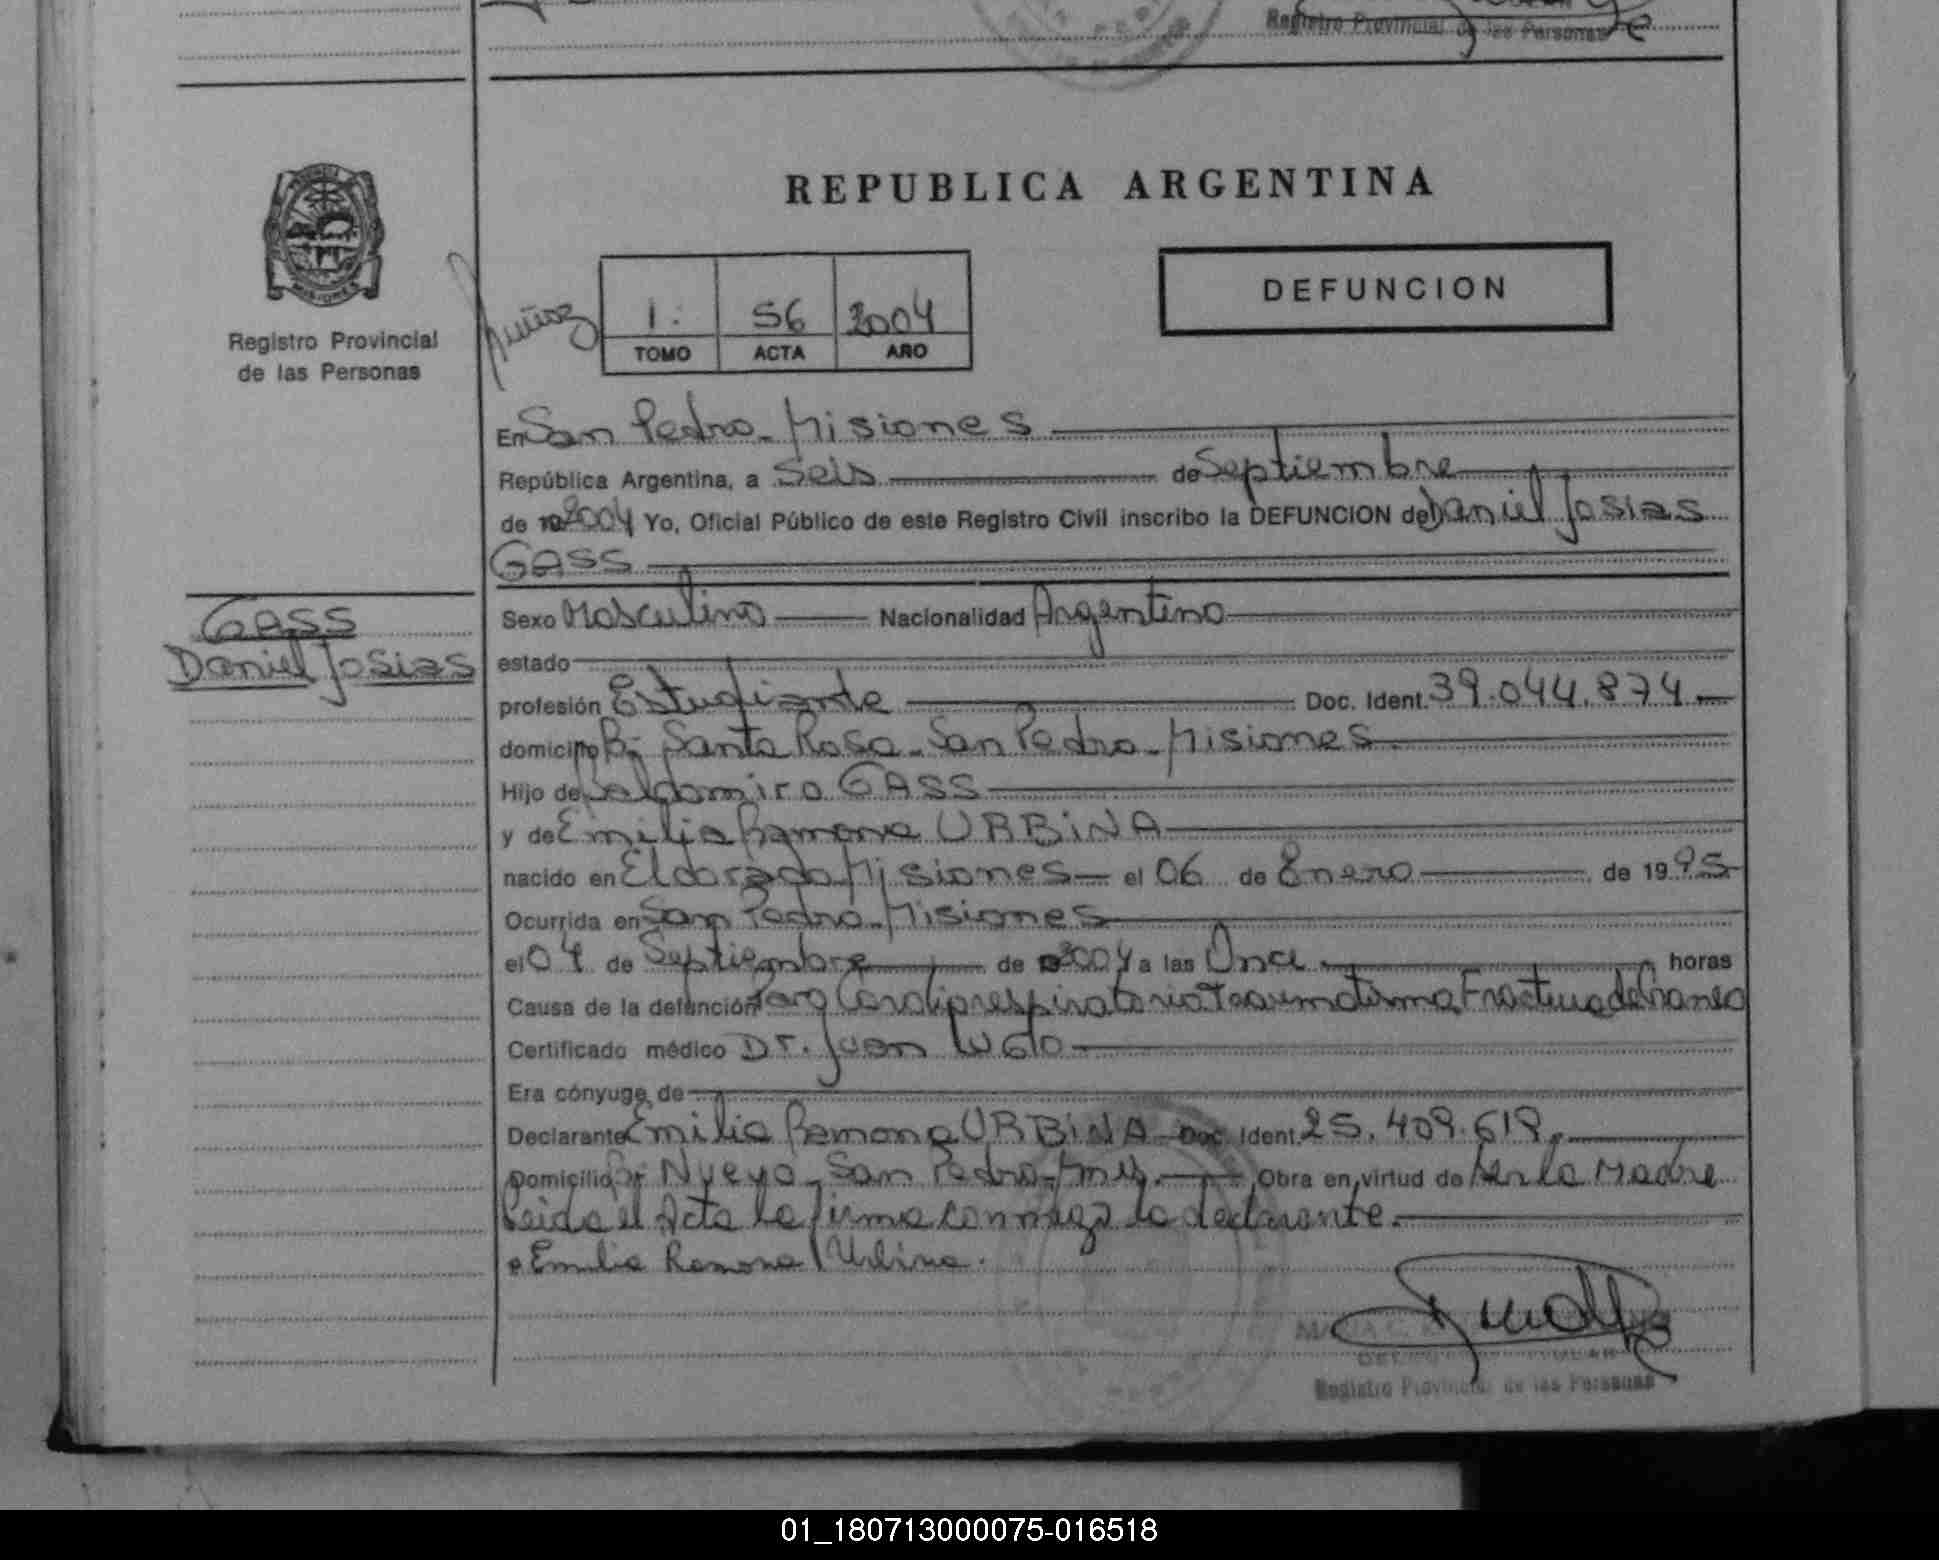 Registro Provincial de las Personas
REPUBLICA ARGENTINA
MISIONES
Registro Provincial
de las Personas
Muñoz
1: 56 2004
TOMO ACTA AÑO
DEFUNCION
En San Pedro - Misiones
República Argentina, a Seis de Septiembre
de 19 2004 Yo, Oficial Público de este Registro Civil inscribo la DEFUNCION de Daniel Josias
GASS
GASS
Daniel Josias
Sexo Masculino Nacionalidad Argentino
estado
profesión Estudiante Doc. Ident. 39.044.874.-
domicilio B: Santa Rosa - San Pedro - Misiones
Hijo de Beldomiro GASS
y de Emilia Ramona URBINA
nacido en Eldorado Misiones el 06 de Enero de 1995
Ocurrida en San Pedro - Misiones
el 04 de Septiembre de 2004 a las Once horas
Causa de la defunción Paro Cardiorespiratorio Traumatismo Fractura de Craneo
Certificado médico Dr. Juan LUGO
Era cónyuge de
Declarante Emilia Ramona URBINA Doc. Ident. 25.409.619.
Domicilio B: Nuevo - San Pedro - Mnes. Obra en virtud de Ser la Madre
Leida el Acta la firma conmigo la declarante.
Emilia Ramona Urbina.
Registro Provincial de las Personas
01_180713000075-016518